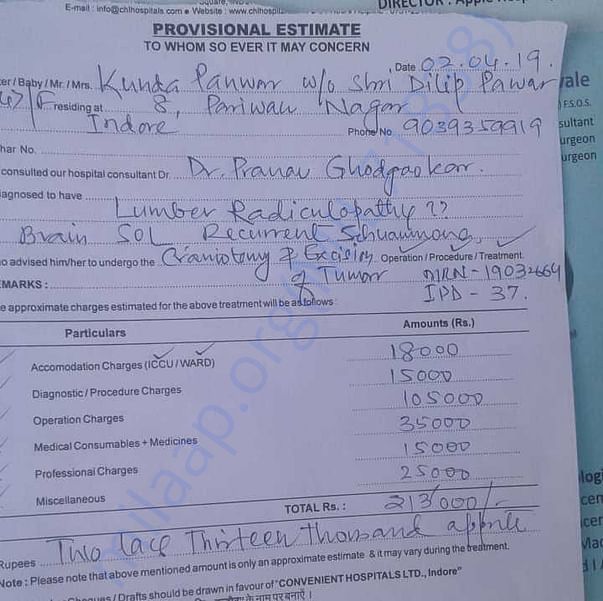 E-mail : info@chlhospitals.com ● Website : www.chlhospi
DIRECTOR
PROVISIONAL ESTIMATE
TO WHOM SO EVER IT MAY CONCERN
Date 02.04.19.
er / Baby / Mr. / Mrs. Kunda Panwar w/o Shri Dilip Pawar
47/F residing at 8, Pariwar Nagar
Indore
Phone No 9039359919
har No.
consulted our hospital consultant Dr. Dr. Pranav Ghodgaokar.
iagnosed to have
Lumber Radiculopathy ??
Brain SOL Recurrent Schwannoma,
o advised him/her to undergo the Craniotomy & Excision Operation / Procedure / Treatment.
of Tumor MRN - 19032664
EMARKS : IPD - 37.
e approximate charges estimated for the above treatment will be as follows :
Particulars Amounts (Rs.)
Accomodation Charges (ICCU / WARD) 18000
Diagnostic / Procedure Charges 15000
Operation Charges 105000
Medical Consumables + Medicines 35000
Professional Charges 15000
Miscellaneous 25000
TOTAL Rs. : 213000/-
Rupees Two lacs Thirteen Thousand
Note : Please note that above mentioned amount is only an approximate estimate & it may vary during the treatment.
Cheques / Drafts should be drawn in favour of "CONVENIENT HOSPITALS LTD., Indore"
के नाम पर बनाऐं ।
vale
F.S.O.S.
sultant
urgeon
urgeon
milaap.org